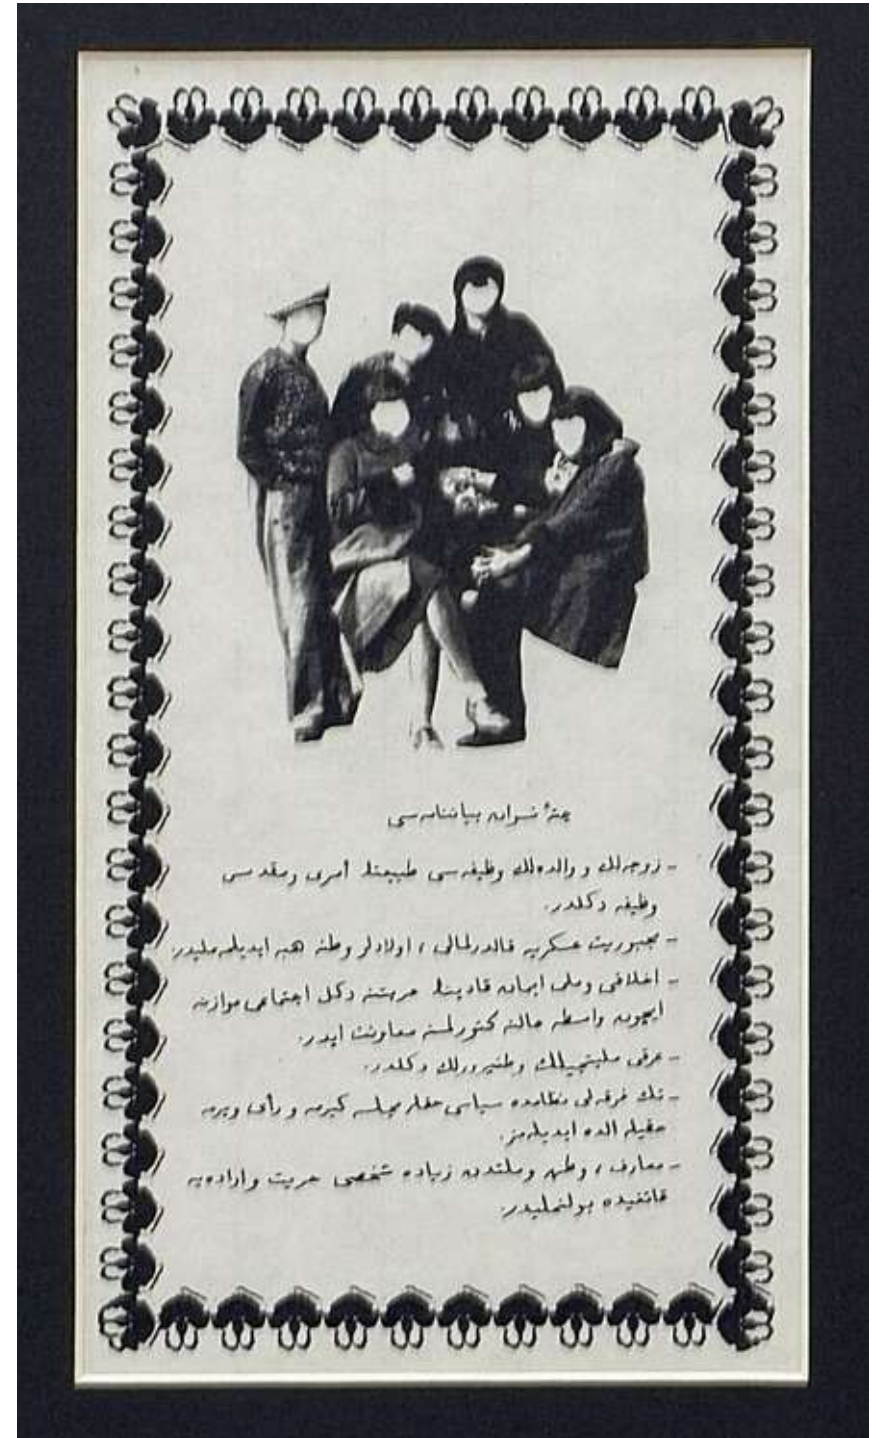 نسوان بياننامه سى
- زوجه لك و والده لك وظيفه سى طبيعتڭ أمرى ومقدسى
وظيفه دكلدر.
- مجبوريت عسكريه قالدرلمالى ، اولادلر وطنه هبه ايديلمه مليدر.
- اخلاقى وملى ايمان قادينڭ حريتنه دكل اجتماعى موازنه
ايچون واسطه حالنه كتورلمسنه معاونت ايدر.
- عرقى مليتچيلك وطنپرورلك دكلدر.
- تك فرقه لى نظامده سياسى حقلر مجلسه كيرمه و رأى ويرمه
حقيله الده ايديله مز.
- معارف ، وطن وملتدن زياده شخصى حريت واراده يه
بولنمليدر.